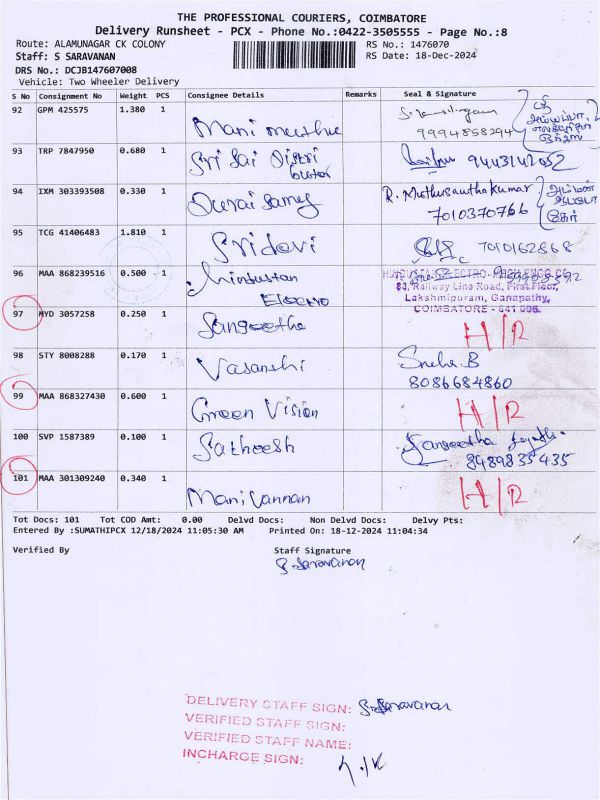 THE PROFESSIONAL COURIERS, COIMBATORE
Delivery Runsheet - PCX - Phone No.:0422-3505555 - Page No.:8
Route: ALAMUNAGAR CK COLONY RS No.: 1476070
Staff: S SARAVANAN RS Date: 18-Dec-2024
DRS No.: DCJB147607008
Vehicle: Two Wheeler Delivery
S No Consignment No Weight PCS Consignee Details Remarks Seal & Signature
92 GPM 425575 1.380 1 Mani muthu 9994858294
93 TRP 7847950 0.680 1 Sri Sai Distri
butor 9443142052
94 IXM 303393508 0.330 1 Durai Samy R. Muthusauthakumar
7010370766
95 TCG 41406483 1.810 1 Sridevi 7010162868
96 MAA 868239516 0.500 1 Hindustan
Electro
83, Railway Line Road, First Floor,
Lakshmipuram, Ganapathy,
COIMBATORE - 641 006.
97 MYD 3057258 0.250 1 Sangeetha H/R
98 STY 8008288 0.170 1 Vasanthi Sneha. B
8086684860
99 MAA 868327430 0.600 1 Green Vision H/R
100 SVP 1587389 0.100 1 Satheesh Sangeetha
8489835435
101 MAA 301309240 0.340 1 Manivannan H/R
Tot Docs: 101 Tot COD Amt: 0.00 Delvd Docs: Non Delvd Docs: Delvy Pts:
Entered By :SUMATHIPCX 12/18/2024 11:05:30 AM Printed On: 18-12-2024 11:04:34
Verified By Staff Signature
S. Saravanan
DELIVERY STAFF SIGN: S. Saravanan
VERIFIED STAFF SIGN:
VERIFIED STAFF NAME:
INCHARGE SIGN: